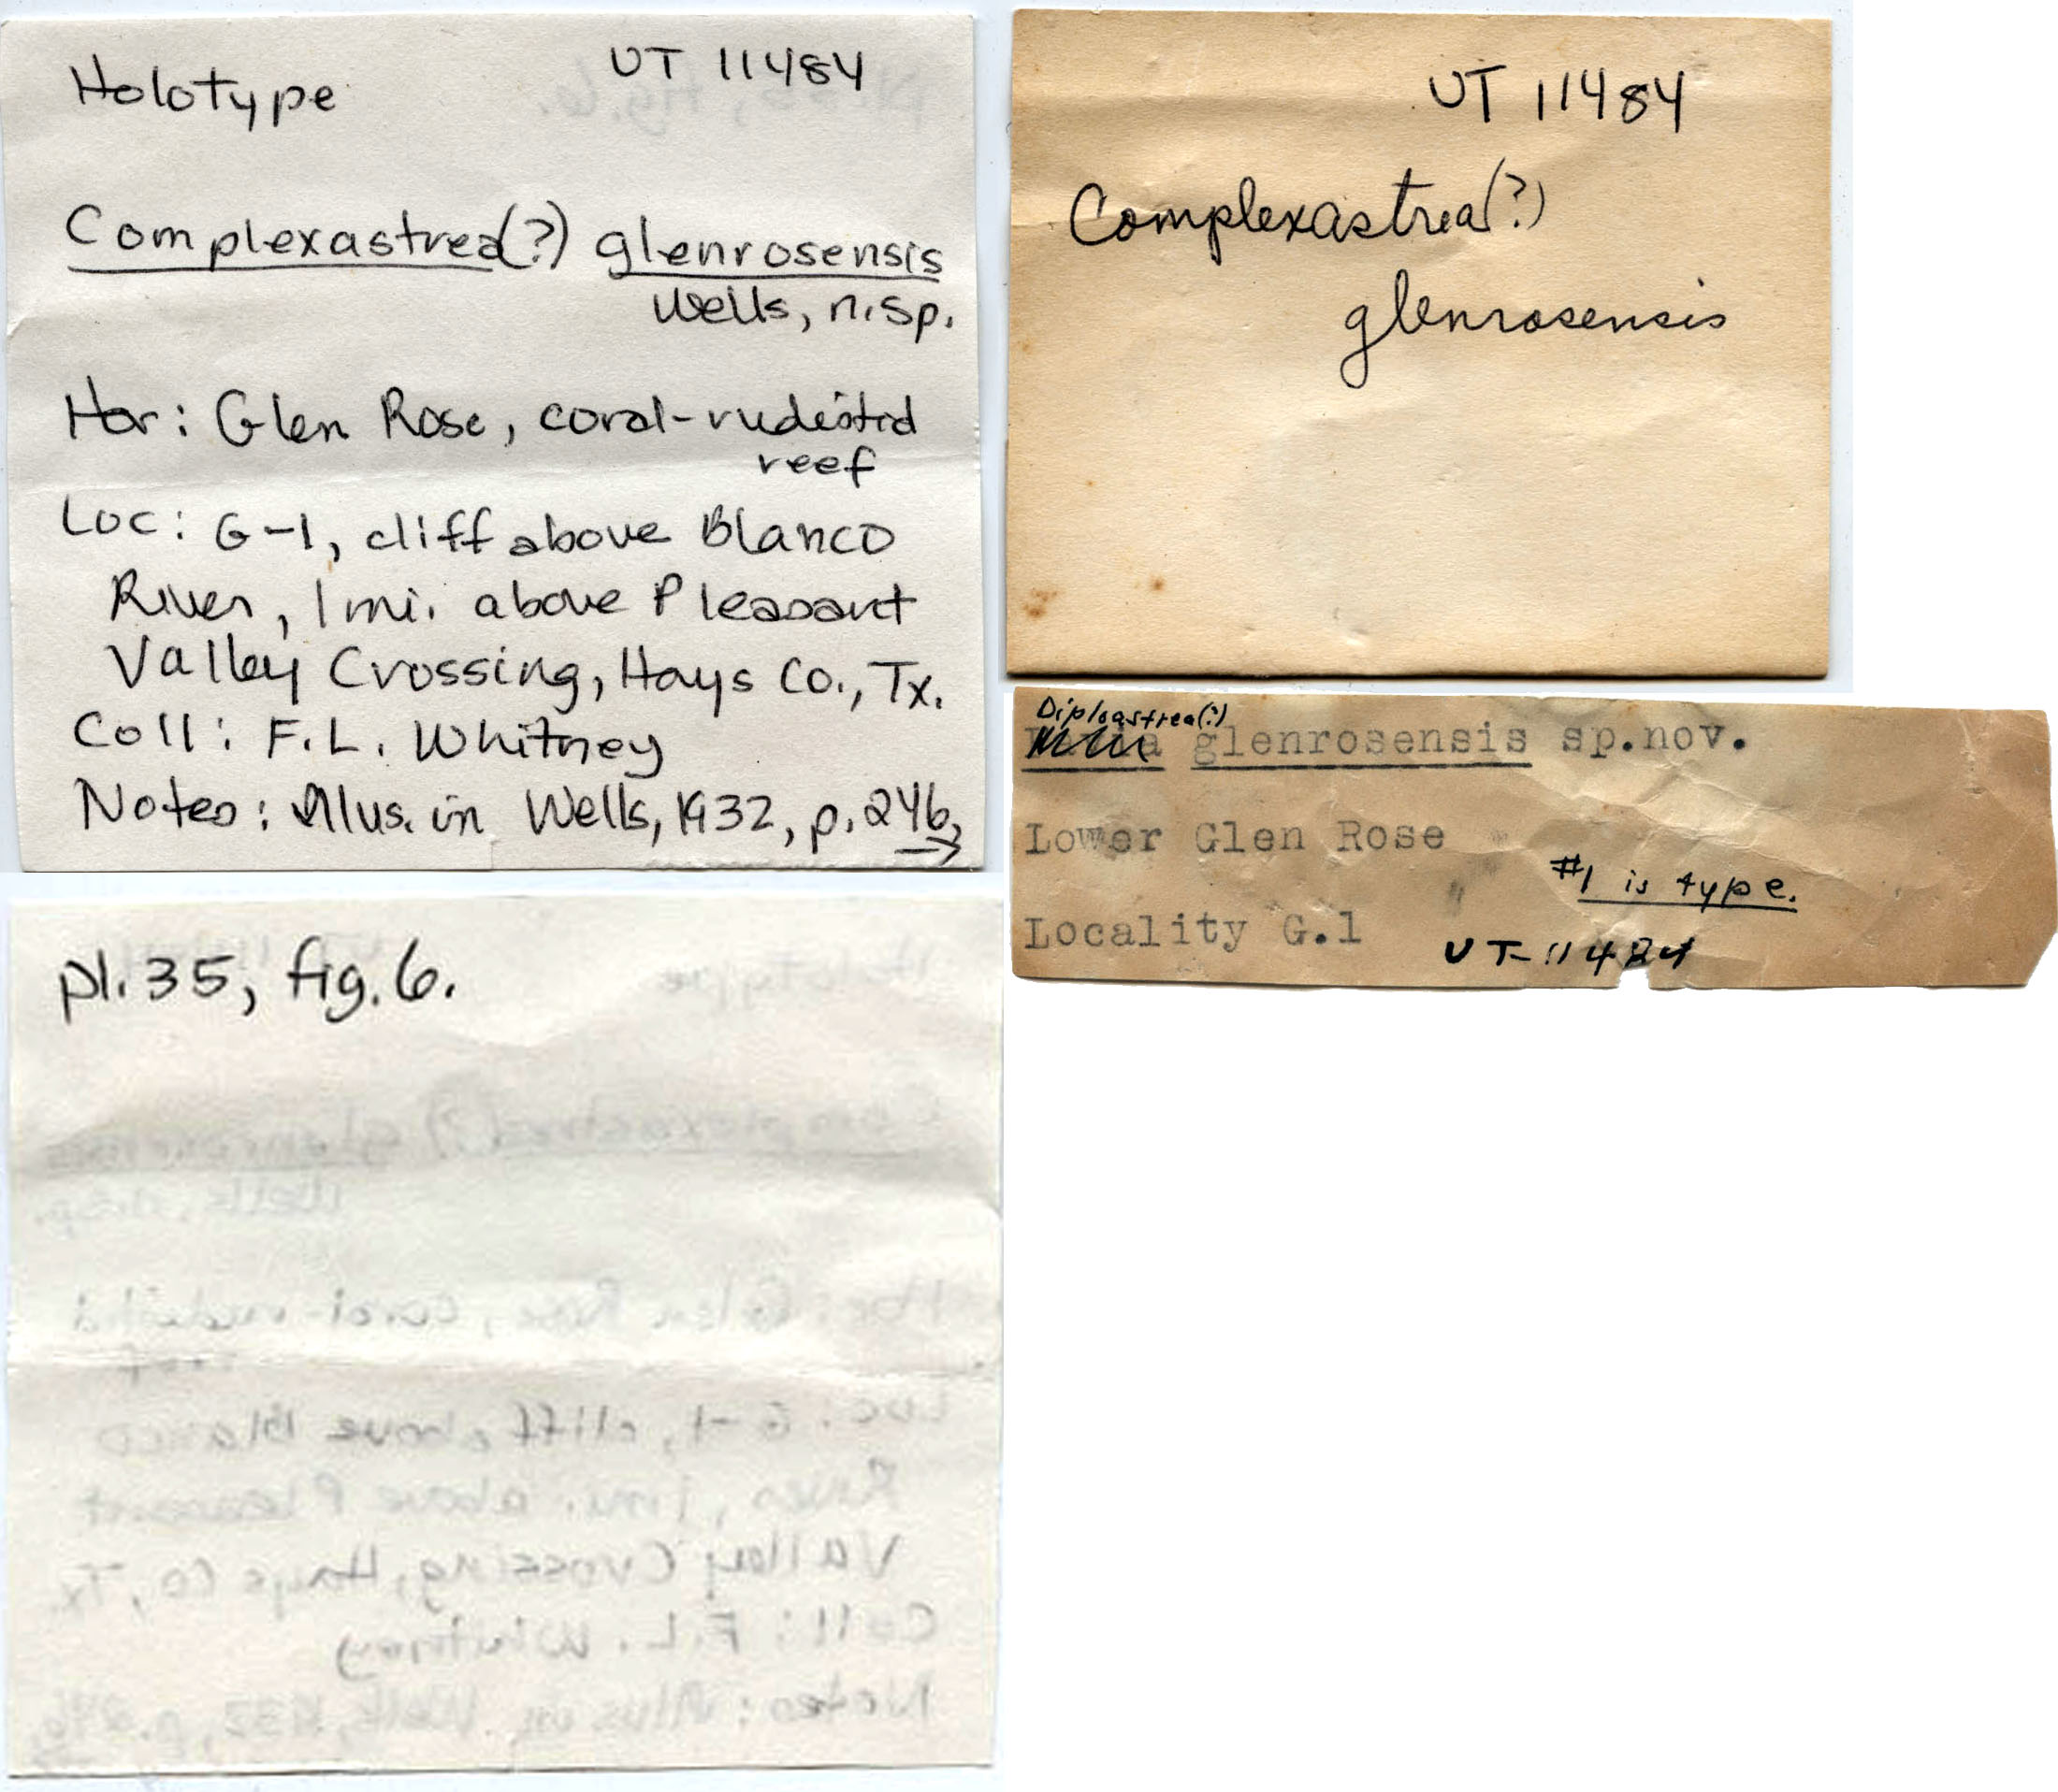 Holotype UT 11484
Complexastrea(?) glenrosensis
Wells, n.sp.
Hor: Glen Rose, coral-rudistid
reef
Loc: G-1, cliff above Blanco
River, 1 mi. above Pleasant
Valley Crossing, Hays Co., Tx.
Coll: F.L. Whitney
Notes: Illus. in Wells, 1932, p. 246,
→
pl. 35, fig. 6.
UT 11484
Complexastrea(?)
glenrosensis
Diploastrea(?)
glenrosensis sp.nov.
Lower Glen Rose
#1 is type.
Locality G.1
UT-11484